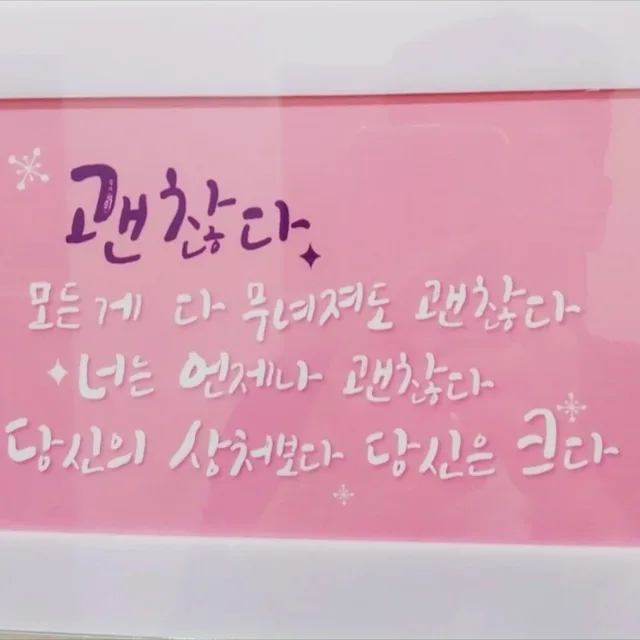 괜찮다
모든게 다 무녀져도 괜찮다
너는 언제나 괜찮다
당신의 상처보다 당신은 크다